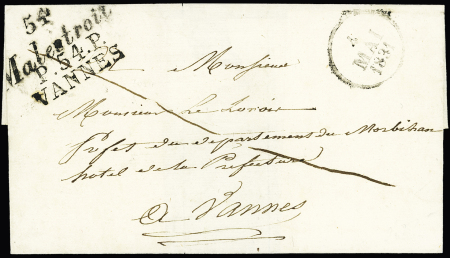 54
Malestroit
P.54.P.
VANNES
MAI
1831
Monsieur
Monsieur Le Lorois
Préfet du département du Morbihan
hotel de la Préfecture
a Vannes